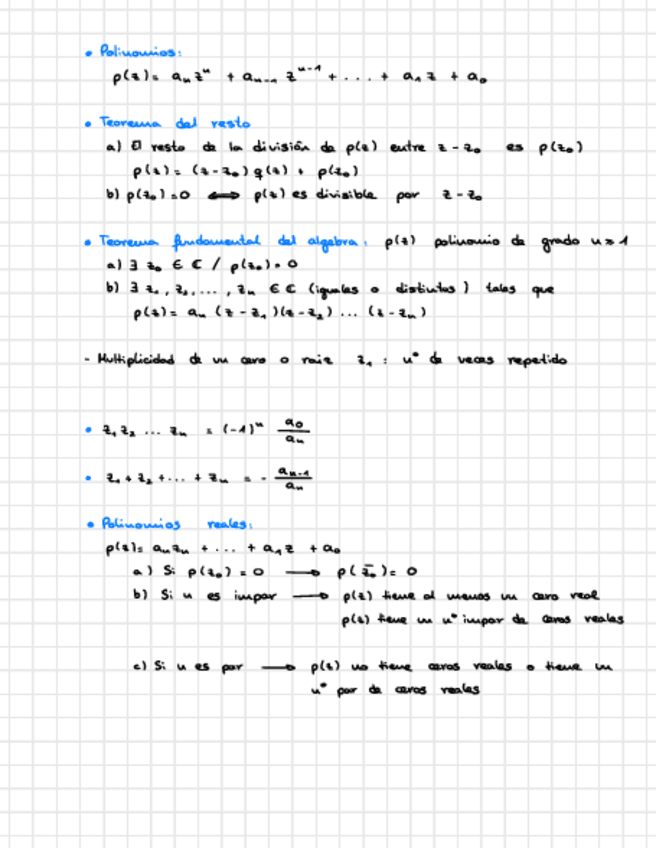 • Polinomios:
p(z) = aₙzⁿ + aₙ₋₁ zⁿ⁻¹ + ... + a₁z + a₀
• Teorema del resto
a) El resto de la división de p(z) entre z - z₀ es p(z₀)
p(z) = (z - z₀) q(z) + p(z₀)
b) p(z₀) = 0 ⟺ p(z) es divisible por z - z₀
• Teorema fundamental del algebra: p(z) polinomio de grado n ≥ 1
a) ∃ z₀ ∈ ℂ / p(z₀) = 0
b) ∃ z₁, z₂, ..., zₙ ∈ ℂ (iguales o distintos) tales que
p(z) = aₙ (z - z₁)(z - z₂) ... (z - zₙ)
- Multiplicidad de un cero o raiz z₁ : nº de veces repetido
• z₁z₂ ... zₙ = (-1)ⁿ a₀/aₙ
• z₁ + z₂ + ... + zₙ = - aₙ₋₁/aₙ
• Polinomios reales:
p(z) = aₙzₙ + ... + a₁z + a₀
a) Si p(z₀) = 0 → p(z̄₀) = 0
b) Si n es impar → p(z) tiene al menos un cero real
p(z) tiene un nº impar de ceros reales
c) Si n es par → p(z) no tiene ceros reales o tiene un
nº par de ceros reales